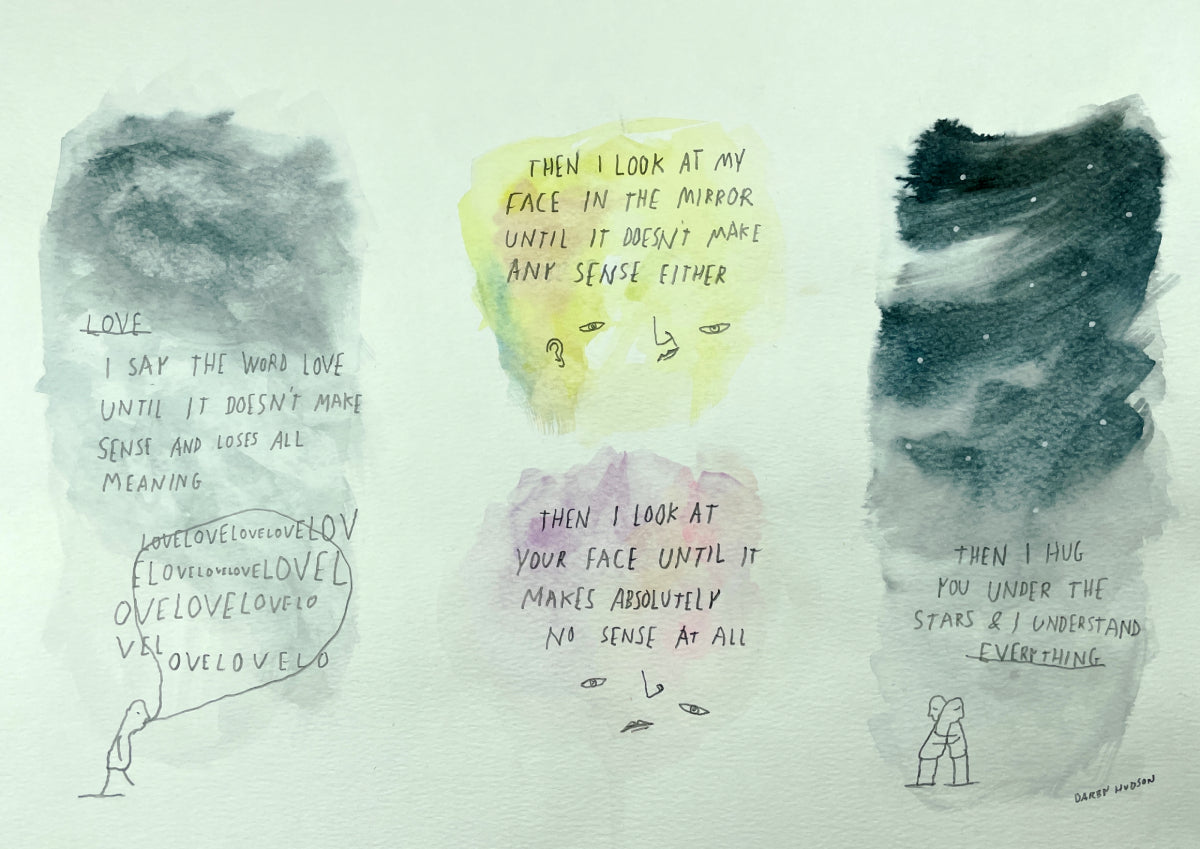 LOVE
I SAY THE WORD LOVE
UNTIL IT DOESN'T MAKE
SENSE AND LOSES ALL
MEANING
LOVELOVELOVELOVELOV
ELOVELOVELOVELOVEL
OVELOVELOVELO
VEL
OVELOVELO
THEN I LOOK AT MY
FACE IN THE MIRROR
UNTIL IT DOESN'T MAKE
ANY SENSE EITHER
THEN I LOOK AT
YOUR FACE UNTIL IT
MAKES ABSOLUTELY
NO SENSE AT ALL
THEN I HUG
YOU UNDER THE
STARS & I UNDERSTAND
EVERYTHING
DARBY HUDSON